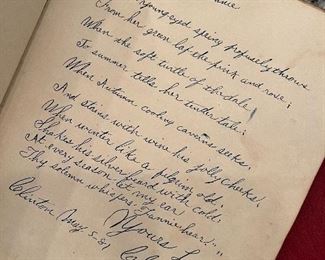 young eyed spring profusely throws
From her green lap the pink and rose;
When the soft turtle of the dale
To summer tells her tender tale;
When Autumn cooling caverns seeks
And stains with wine his jolly cheeks;
When winter like a pilgrim old,
Shakes his silver beard with cold,
At every season let my ear
Thy solemn whispers, Fannie hear."
Yours
Clinton May 5-81